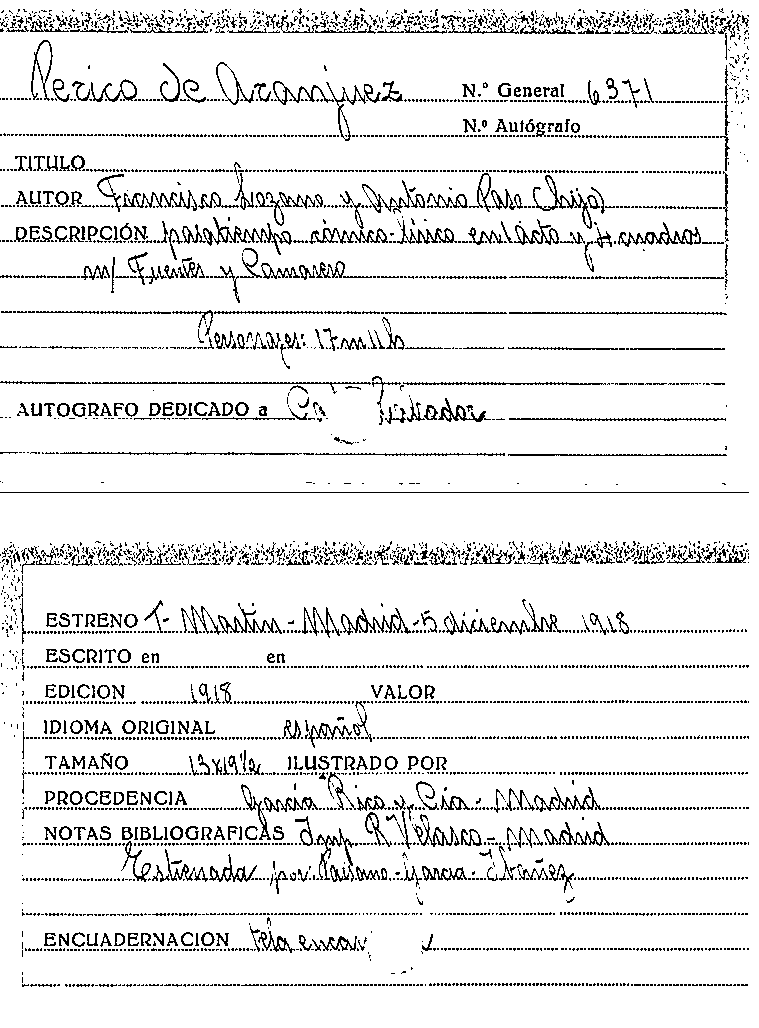 Perico de Aranjuez N.º General 6371
N.º Autógrafo
TITULO
AUTOR Francisco Lozano y Antonio Paso (hijo)
DESCRIPCIÓN pasatiempo cómico-lírico en 1 acto y 4 cuadros
m/ Fuentes y Camarero
Personajes: 17 m 11 h
AUTOGRAFO DEDICADO a
ESTRENO T- Martin-Madrid-5 diciembre 1918
ESCRITO en en
EDICION 1918 VALOR
IDIOMA ORIGINAL español
TAMAÑO 13x19½ ILUSTRADO POR
PROCEDENCIA García Rico y Cía - Madrid
NOTAS BIBLIOGRAFICAS Imp. R Velasco - Madrid
Estrenada por: -Garcia-Ibáñez
ENCUADERNACION tela